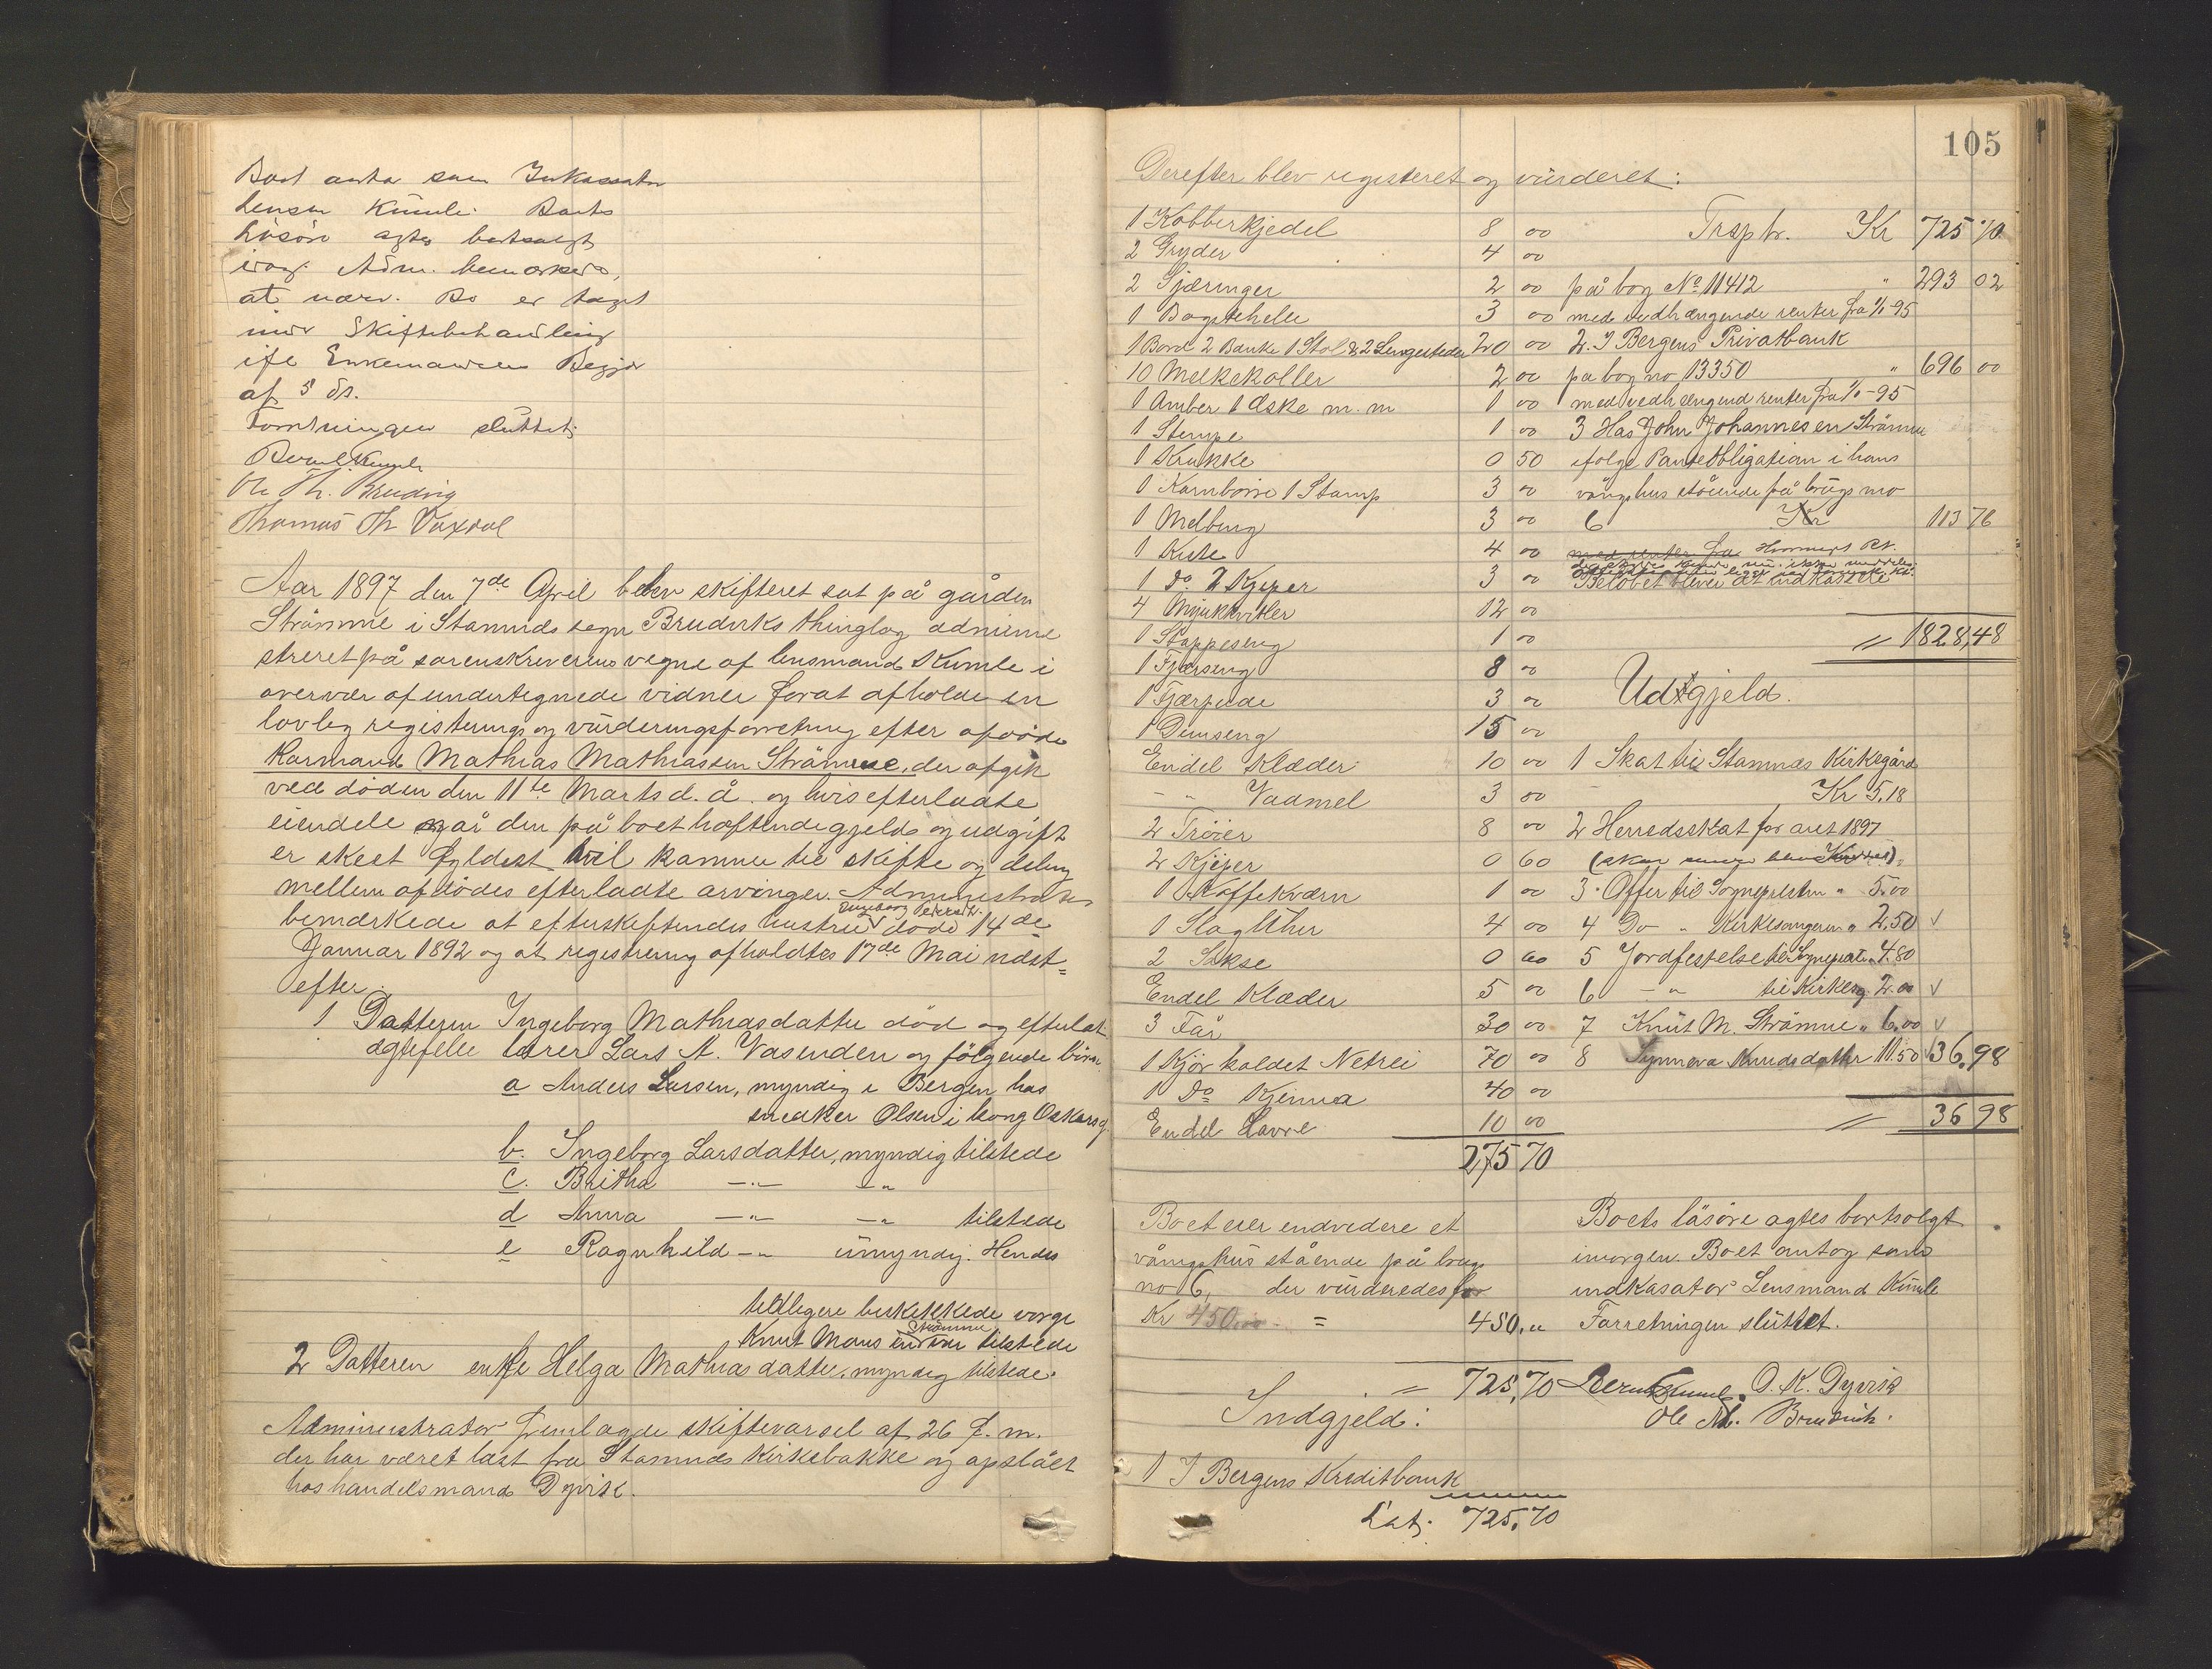 Boet antog som Inkassator
Lensm Kumle. Boets
Løsøre agtes bortsolgt
imrg. Adm. bemærkede,
at nærv. Bo er taget
under Skiftebehandling
ifl Enkemandens Begjær
af 5 ds.
Forretningen sluttet.
Bernt Kumle
Ole Th. Brudvig
Thomas Th Vaxdal
Aar 1897 den 7de April blev skifteret sat på gården
Strömme i Stamnds sogn Bruviks thinglag admini
streret på sorenskriverens vegne af lensmand Kumle i
overvær af undertegnede vidner forat afholde en
lovleg registrerings og vürderingsforretning efter afdöde
Kårmand Mathias Mathiassen Strömme, der afgik
ved döden den 11te Marts d. å. og hvis efterladte
eiendele når den på boet hæftende gjeld og udgift
er skeet fyldest vil komme til skifte og deling
mellem afdödes efterladte arvinger. Administrator
bemærkede at efterskiftendes hustru Ingeborg Pedersdtr. döde 14de
Januar 1892 og at registrering afholdtes 17de Mai ndst=
efter.
1 Datteren Ingeborg Mathiasdatter död og efterlat
ægtefelle lærer Lars A. Vasenden og fölgende börn.
a Anders Larsen, myndig i Bergen hos
snedker Olsen i kong Oskarsg.
b. Ingeborg Larsdatter, myndig tilstede
c. Britha —"— —"
d Anna —"— —" tilstede
e Ragnhild —" umyndig. Hendes
tidligere beskikkede verge
Knut Monsen Strömme var tilstede
2 Datteren enke Helga Mathiasdatter, myndig tilstede.
Administrator fremlagde skiftevarsel af 26 f. m.
der har været læst fra Stamnds Kirkebakke og opslået
hos handelsmand Dyvik.
105
Derefter blev registeret og vürderet:
1 Kobberkjedel 8 00
2 Gryder 4 00
2 Gjæringer 2 00
1 Bagstehelle 3 00
1 Bord 2 Bænke 1 Stol & 2 Sengesteder 20 00
10 Melkekoller 2 00
1 Amber 1 Æske m. m 1 00
1 Strype 1 00
1 Krukke 0 50
1 Kornbörre 1 Stamp 3 00
1 Melbing 3 00
1 Kiste 4 00
1 do 2 Kjeper 3 00
4 Mjukkvitler 12 00
1 Stappeseng 1 00
1 Fjærseng 8 00
1 Fjærpude 3 00
1 Dunseng 15 00
Endel Klæder 10 00
— " Vadmel 3 00
2 Tröier 8 00
2 Kjeper 0 60
1 Kaffekværn 1 00
1 Slaguhr 4 00
2 Sakse 0 60
Endel Klæder 5 00
3 Får 30 00
1 Kjör kaldet Netrei 70 00
1 Do Kjenna 40 00
Endel Lavre 10 00
275 70
Boet eier endvidere et
våningshus stående på brugs
no 6, der vürderedes for
Kr 450.00 = 450.00
= 725,70
Indgjeld:
1 I Bergens Kreditbank
Lat. 725.70
Trsptr. Kr 725 70
på bog No 11412 " 293 02
med vedhængende renter fra 1/1-95
2. I Bergens Privatbank
på bog no 13350 " 696 00
med vedhængend renter fra 1/1-95
3 Hos John Johannesen Strömme
ifölge Panteobligation i hans
vånghus stående på brugs no
6 Kr 113 76
med renter fra
Belöbet bliver at indkassere
= 1828,48
Udgjeld.
1 Skat til Stamnæs Kirkegård
Kr 5,18
2 Herredsskat for aret 1897
3. Offer til Sognepresten " 5.00
4 Do " Kirkesangeren " 2,50
5 Jordfestelse til Sognepræsten 4.80
6 —"— til Kirkesg. 2.00
7 Knut M. Strömme " 6.00
8 Synneva Knudsdatter 11.50 36,98
= 36 98
Boets läsöre agtes bortsolgt
imorgen. Boet antog som
indkasator Lensmand Kumle
Forretningen sluttet.
Bernt Kumle. O. K. Dyvik
Ole Th. Brudvik.